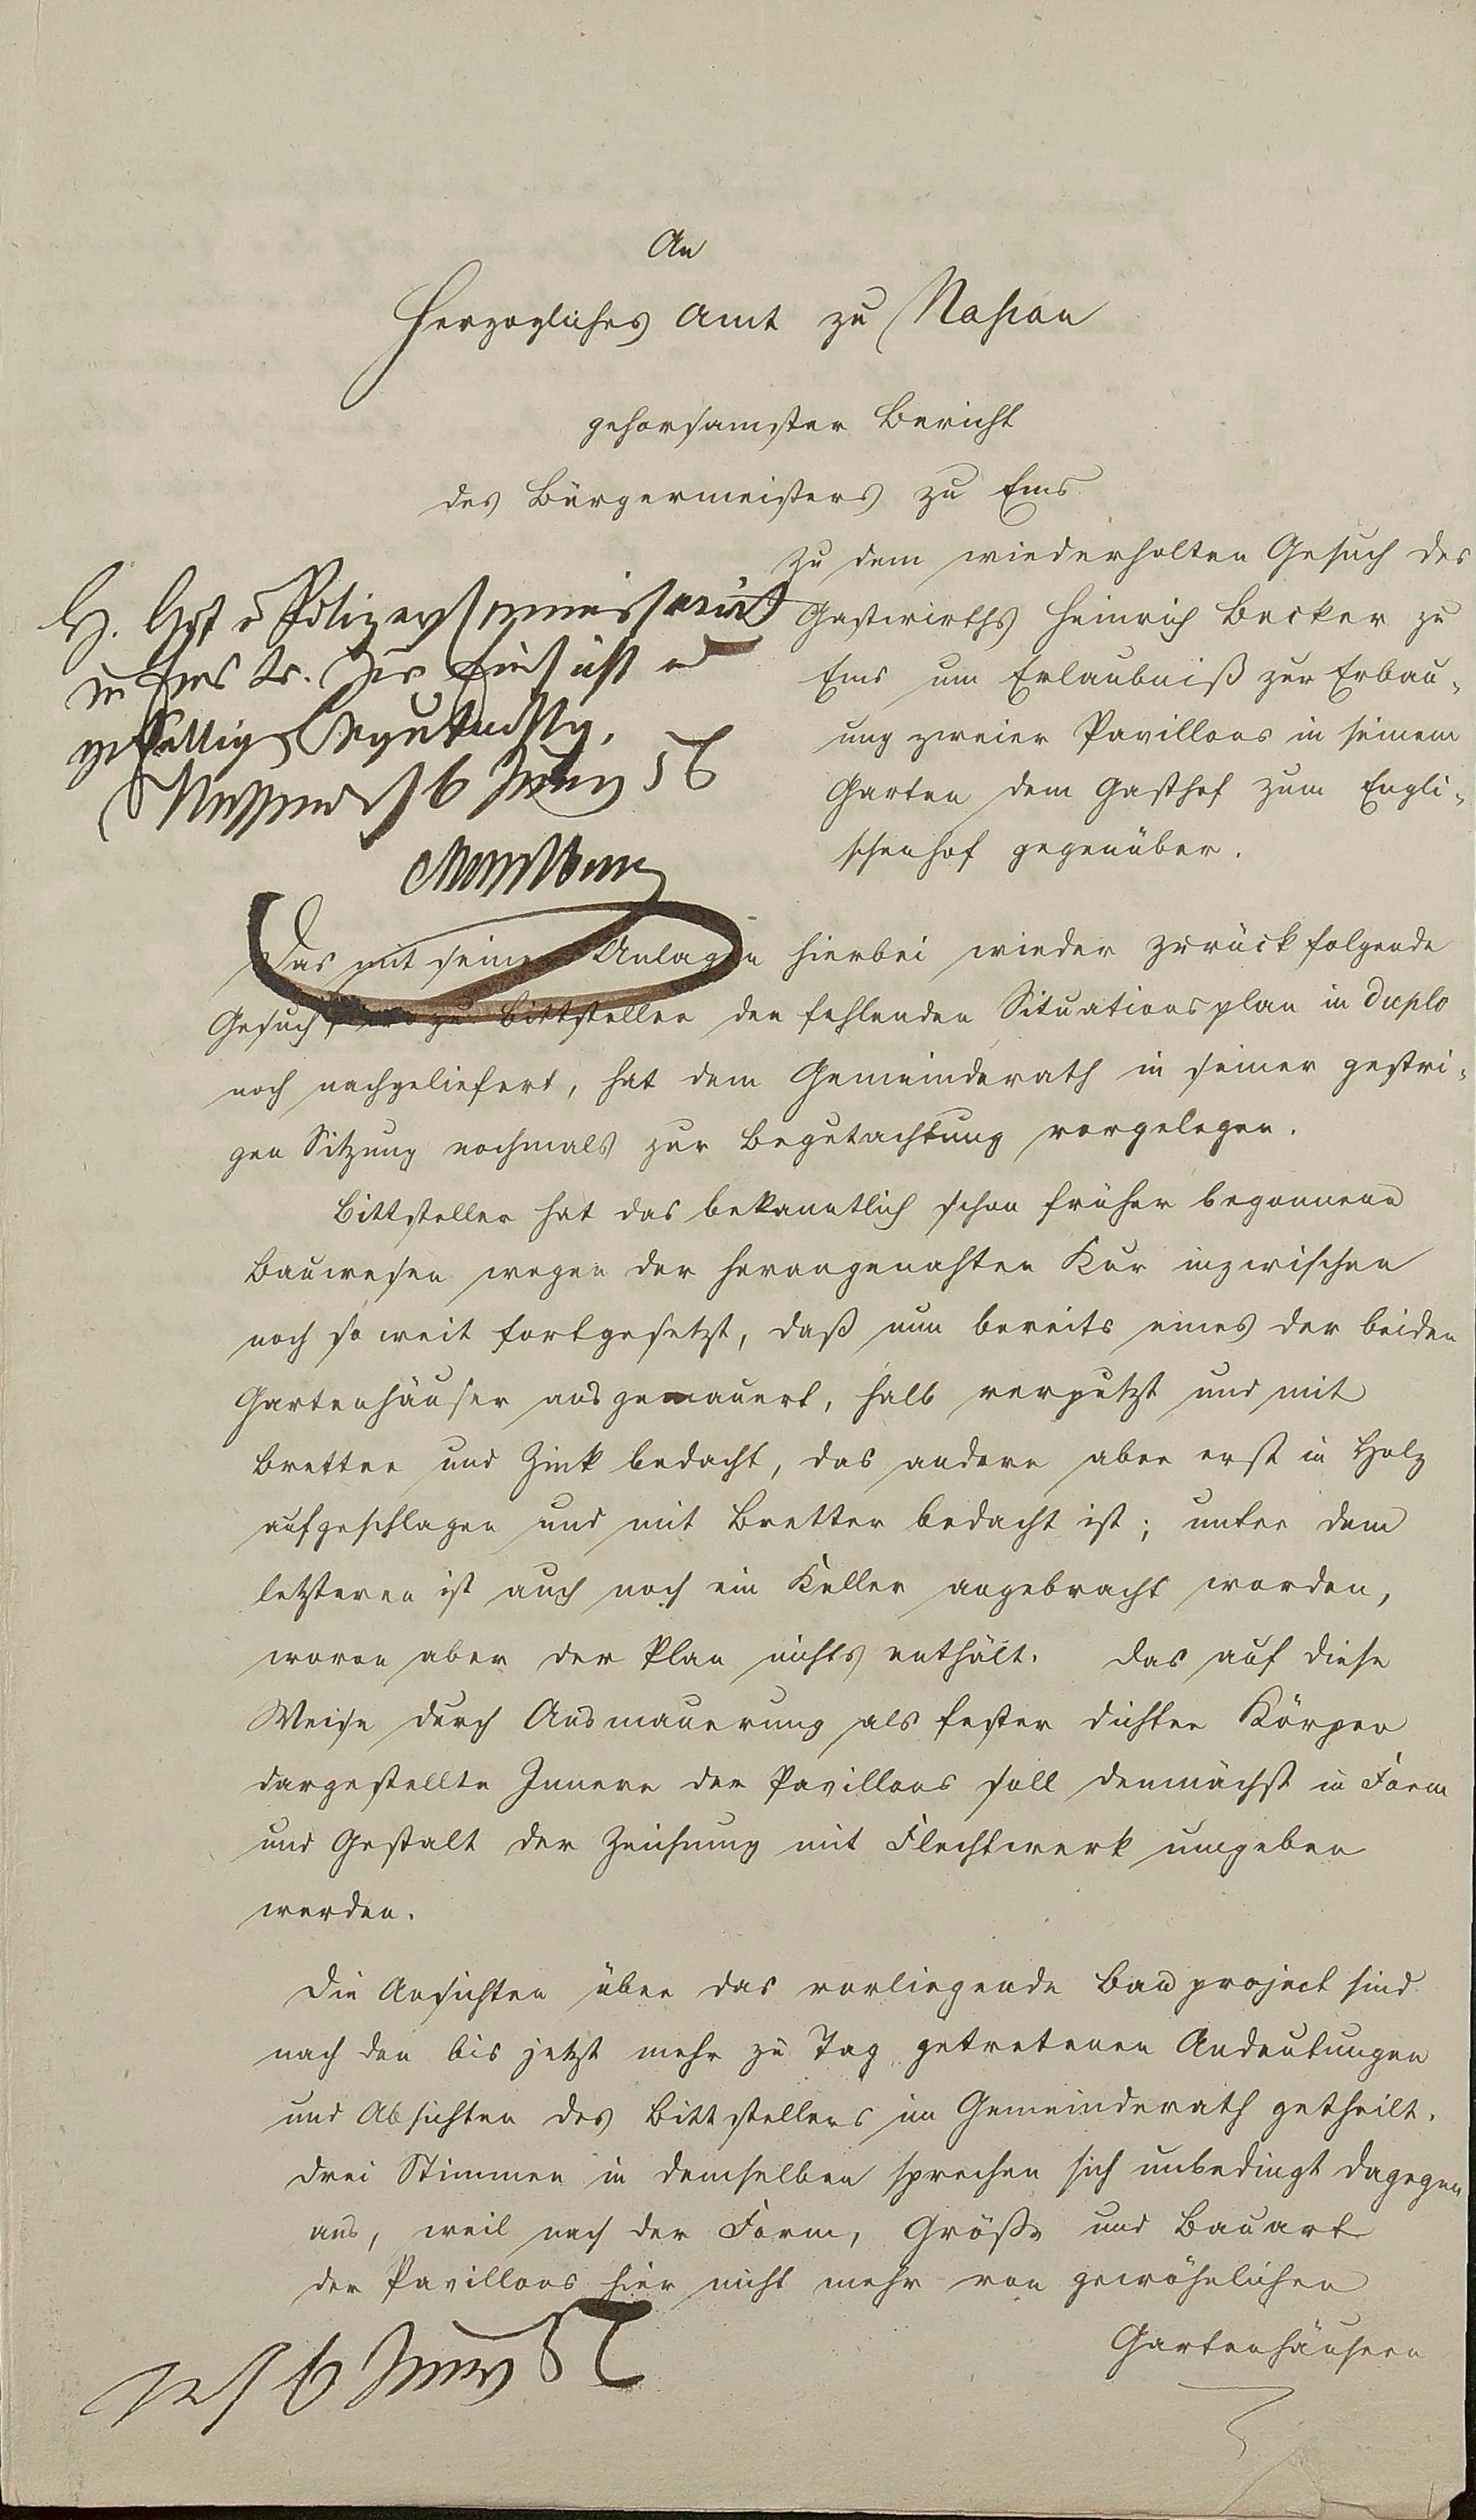 An
Herzogliches Amt zu Nassau
gehorsamster Bericht
des Bürgermeisters zu Ems
zu dem wiederholten Gesuch des
Gastwirths Heinrich Becker zu
Ems um Erlaubniß zur Erbau-
ung zweier Pavillons in seinem
Garten dem Gasthof zum Engli-
schenhof gegenüber.
H. Polizeycommissariat
in Ems zur Einsicht u
gefälligen Begutachtung.
Nassau d 6 Juny 56
Das mit seinen Anlagen hierbei wieder zurückfolgende
Gesuch, wozu Bittsteller den fehlenden Situationsplan in duplo
noch nachgeliefert, hat dem Gemeinderath in seiner gestri-
gen Sitzung nochmals zur Begutachtung vorgelegen.
Bittsteller hat das bekanntlich schon früher begonnene
Bauwesen wegen der herangenahten Kur inzwischen
noch so weit fortgesetzt, daß nun bereits eines der beiden
Gartenhäuser ausgemauert, halb verputzt und mit
Bretter und Zink bedacht, das andere aber erst in Holz
aufgeschlagen und mit Bretter bedacht ist; unter dem
letzteren ist auch noch ein Keller angebracht worden,
wovon aber der Plan nichts enthält. Das auf diese
Weise durch Ausmauerung als fester dichter Körper
dargestellte Innere der Pavillons soll demnächst in Form
und Gestalt der Zeichnung mit Flechtwerk umgeben
werden.
Die Ansichten über das vorliegende Bauproject sind
nach den bis jetzt mehr zu Tag getretenen Andeutungen
und Absichten des Bittstellers im Gemeinderath getheilt.
Drei Stimmen in demselben sprechen sich unbedingt dagegen
aus, weil nach der Form, Größe und Bauart
der Pavillons hier nicht mehr von gewöhnlichen
Gartenhäusern
6 Juny 56